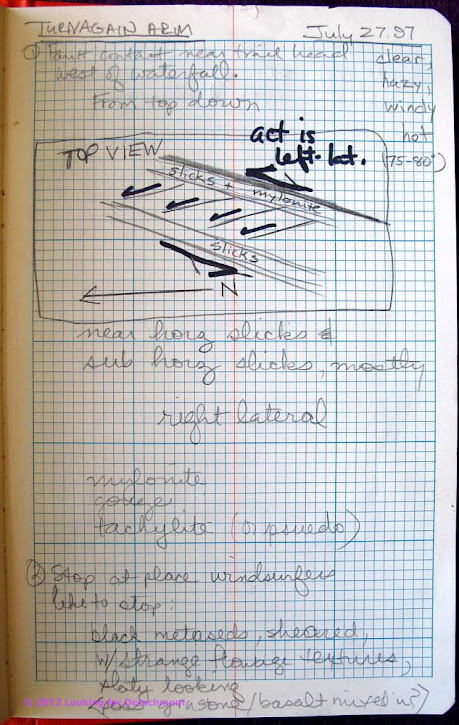 TURNAGAIN ARM July 27.97
① Fault contact near trail head clear,
west of waterfall. hazy,
From top down windy
hot
(75-80°)
act is
left-lat.
TOP VIEW
slicks + mylonite
slicks
N
near horz slicks &
sub horz slicks, mostly
right lateral
mylonite
gouge
tachylite (or psuedo)
② Stop at place windsurfers
like to stop:
black metaseds, sheared,
w/ strange flowage textures,
slaty looking
greenstone/basalt mixed in?)
© 2012 Looking for Detachment